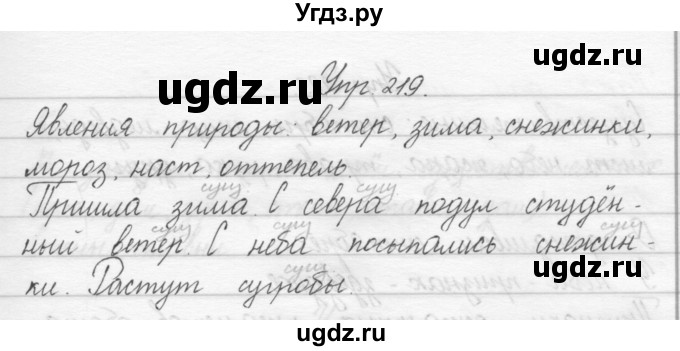 Угдз.ру
Упр 219.
ugdz.ru
Явления природы ветер, зима, снежинки,
мороз, наст, оттепель.
ugdz.ru
сущ. сущ
Пришла зима. С севера подул студён-
сущ сущ сущ
ный ветер. С неба посыпались снежин-
ugdz.ru
сущ
ки. Растут сугробы.
ugdz.ru
ugdz.ru